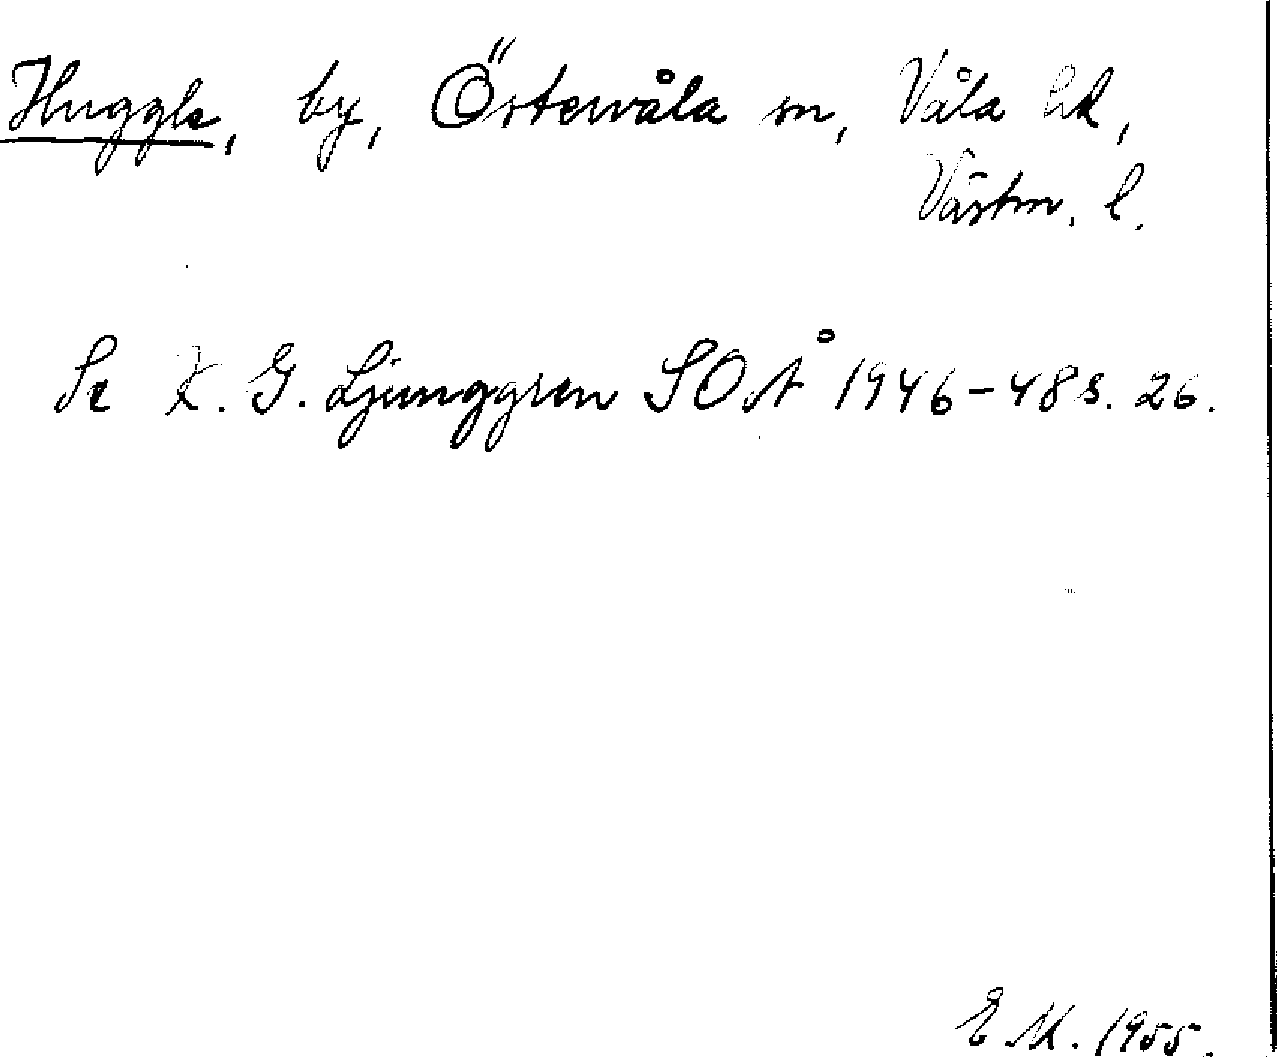 Huggle, by, Östervåla sn, Våla hd,
Västm. l.
Se K. G. Ljunggren SOÅ 1946-48 s. 26.
E M. 1955.